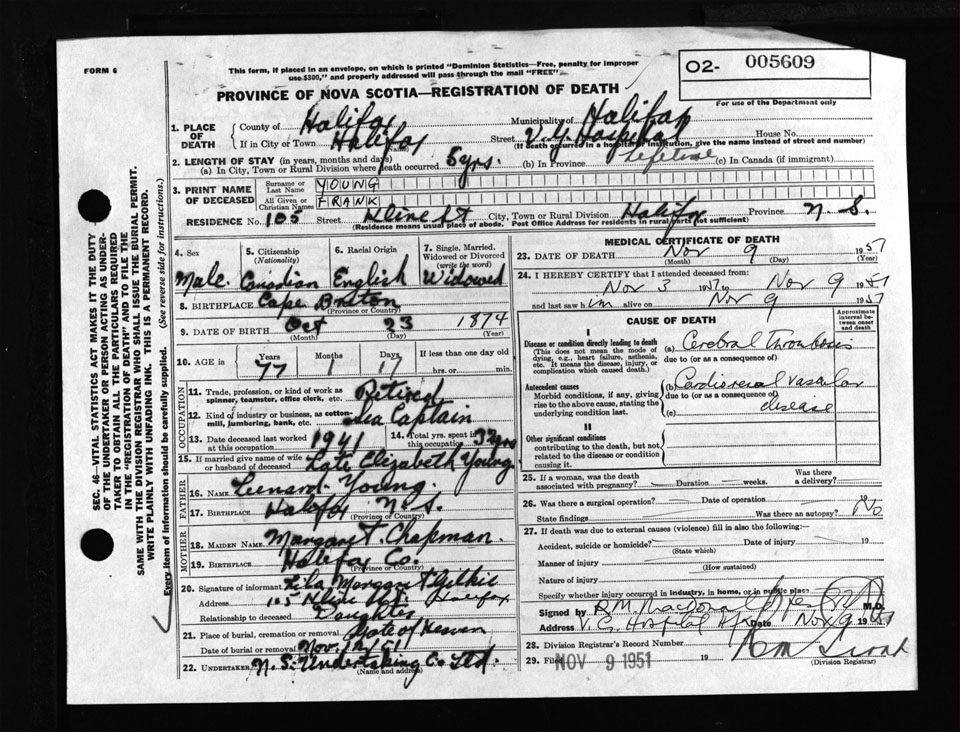 FORM 6
This form, if placed in an envelope, on which is printed "Dominion Statistics—Free, penalty for improper
use $300," and properly addressed will pass through the mail "FREE"
02- 005609
For use of the Department only
PROVINCE OF NOVA SCOTIA—REGISTRATION OF DEATH
1. PLACE OF DEATH { County of Halifax Municipality of Halifax
If in City or Town Halifax Street V.G. Hospital House No.
Name (If death occurred in a hospital or institution, give the name instead of street and number)
2. LENGTH OF STAY (in years, months and days)
(a) In City, Town or Rural Division where death occurred 5 yrs. (b) In Province Lifetime (c) In Canada (if immigrant)
3. PRINT NAME OF DECEASED { Surname or Last Name YOUNG
All Given or Christian Names FRANK
RESIDENCE No. 105 Street Kline St City, Town or Rural Division Halifax Province N.S.
(Residence means usual place of abode. Post Office Address for residents in rural parts not sufficient)
4. Sex
Male
5. Citizenship (Nationality)
Canadian
6. Racial Origin
English
7. Single, Married, Widowed or Divorced (write the word)
Widowed
8. BIRTHPLACE Cape Breton
(Province or Country)
9. DATE OF BIRTH Oct 23 1874
(Month) (Day) (Year)
10. AGE in { Years Months Days If less than one day old
77 1 17 hrs. or min.
OCCUPATION
11. Trade, profession, or kind of work as spinner, teamster, office clerk, etc. Retired
12. Kind of industry or business, as cotton-mill, lumbering, bank, etc. Sea Captain
13. Date deceased last worked at this occupation 1941 14. Total yrs. spent in this occupation 32 yrs
15. If married give name of wife or husband of deceased Late Elizabeth Young
FATHER
16. NAME Leonard Young.
17. BIRTHPLACE Halifax N.S.
(Province or Country)
MOTHER
18. MAIDEN NAME Margaret Chapman.
19. BIRTHPLACE Halifax Co.
(Province or Country)
20. Signature of informant Margaret
Address 105 Kline St. Halifax
Relationship to deceased Daughter
21. Place of burial, cremation or removal Gate of Heaven
Date of burial or removal Nov. 12/51
22. UNDERTAKER N.S. Undertaking Co Ltd.
(Name and address)
MEDICAL CERTIFICATE OF DEATH
23. DATE OF DEATH Nov 9 1951
(Month) (Day) (Year)
24. I HEREBY CERTIFY that I attended deceased from:
Nov 3 1951 to Nov 9 1951
and last saw him alive on Nov 9 1951
CAUSE OF DEATH
Approximate interval between onset and death
I
Disease or condition directly leading to death
(This does not mean the mode of dying, e.g., heart failure, asthenia, etc. It means the disease, injury, or complication which caused death.)
(a) Cerebral Thrombosis
due to (or as a consequence of)
Antecedent causes
Morbid conditions, if any, giving rise to the above cause, stating the underlying condition last.
(b) Cardiorenal vascular
due to (or as a consequence of)
disease
(c)
II
Other significant conditions
contributing to the death, but not related to the disease or condition causing it.
25. If a woman, was the death associated with pregnancy? Duration weeks. Was there a delivery?
26. Was there a surgical operation? Date of operation 19
State findings Was there an autopsy? No
27. If death was due to external causes (violence) fill in also the following:
Accident, suicide or homicide? Date of injury 19
(State which)
Manner of injury
(How sustained)
Nature of injury
Specify whether injury occurred in industry, in home, or in public place
Signed by R.M. MacDonald M.D.
Address V.G. Hospital Hfx Date Nov 9 1951
28. Division Registrar's Record Number
29. Filed NOV 9 1951 19
(Division Registrar)
SEC. 46—VITAL STATISTICS ACT MAKES IT THE DUTY
OF THE UNDERTAKER OR PERSON ACTING AS UNDER-
TAKER TO OBTAIN ALL THE PARTICULARS REQUIRED
IN THE "REGISTRATION OF DEATH" AND TO FILE THE
SAME WITH THE DIVISION REGISTRAR WHO SHALL ISSUE THE BURIAL PERMIT.
WRITE PLAINLY WITH UNFADING INK. THIS IS A PERMANENT RECORD.
Every item of information should be carefully supplied. (See reverse side for instructions.)